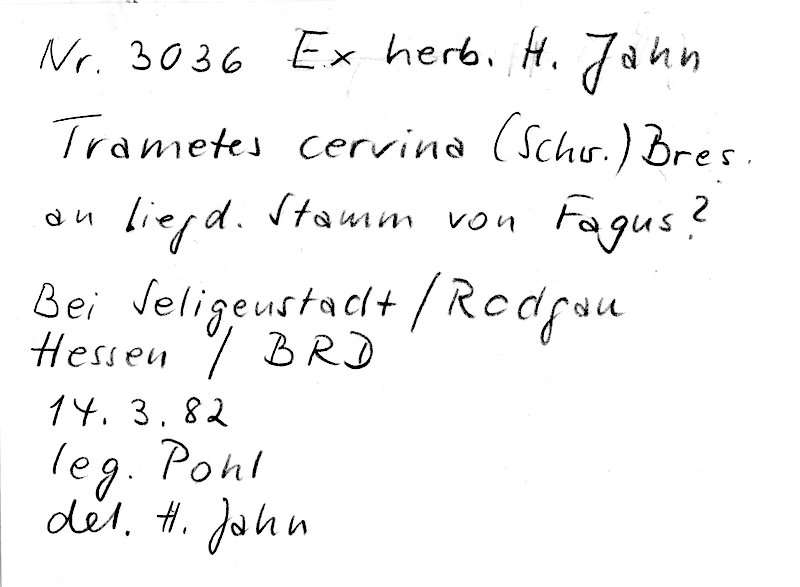 Nr. 3036 Ex herb. H. Jahn
Trametes cervina (Schw.) Bres.
an liegd. Stamm von Fagus?
Bei Seligenstadt / Rodgau
Hessen / BRD
14. 3. 82
leg. Pohl
det. H. Jahn